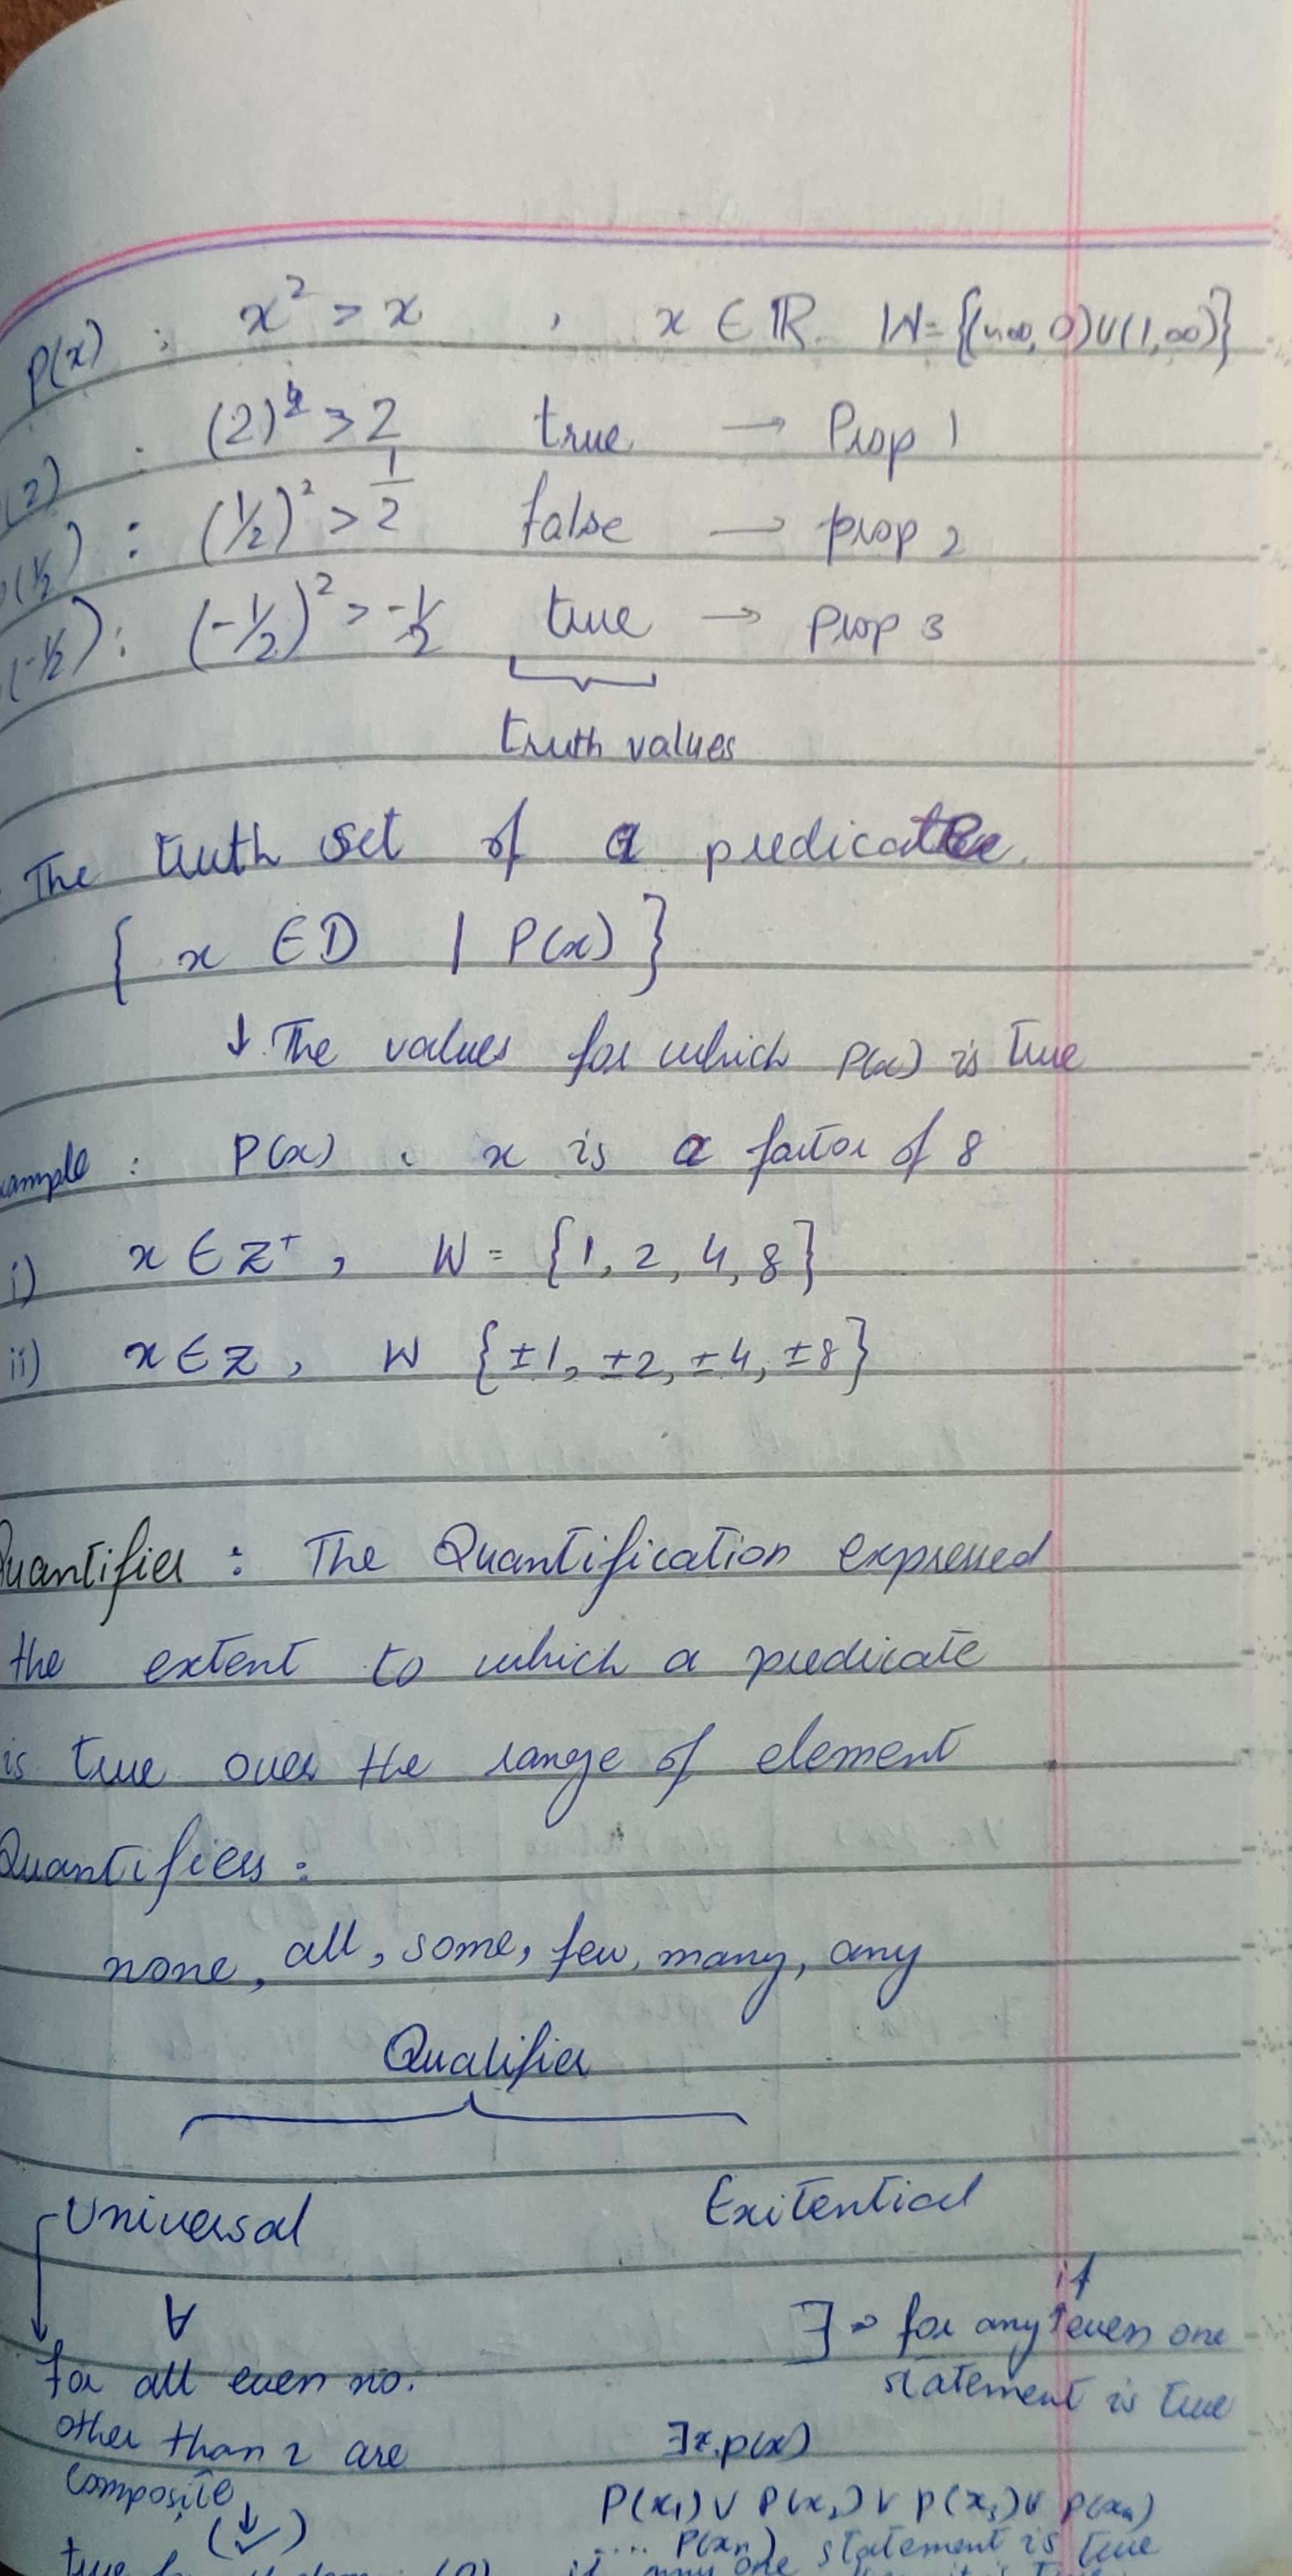 P(x) : x² > x , x ∈ ℝ W = {(-∞, 0) ∪ (1, ∞)}
(2) : (2)² > 2 true → Prop 1
(1/2) : (1/2)² > 1/2 false → prop 2
(-1/2) : (-1/2)² > -1/2 true → prop 3
truth values
The truth set of a predicate.
{ x ∈ D | P(x) }
↓ The values for which P(x) is true
xample : P(x) : x is a factor of 8
i) x ∈ Z⁺ , W = {1, 2, 4, 8}
ii) x ∈ Z , W {±1, ±2, ±4, ±8}
Quantifier : The Quantification expressed
the extent to which a predicate
is true over the range of element
Quantifiers :
none, all, some, few, many, any
Qualifier
Universal Exitential
∀ ∃ ⇒ for any if even one
statement is true
for all even no.
other than 2 are
composite
(↓)
∃x P(x)
P(x₁) ∨ P(x₂) ∨ P(x₃) ∨ P(x₄)
.... P(xₙ) statement is true
true if any one